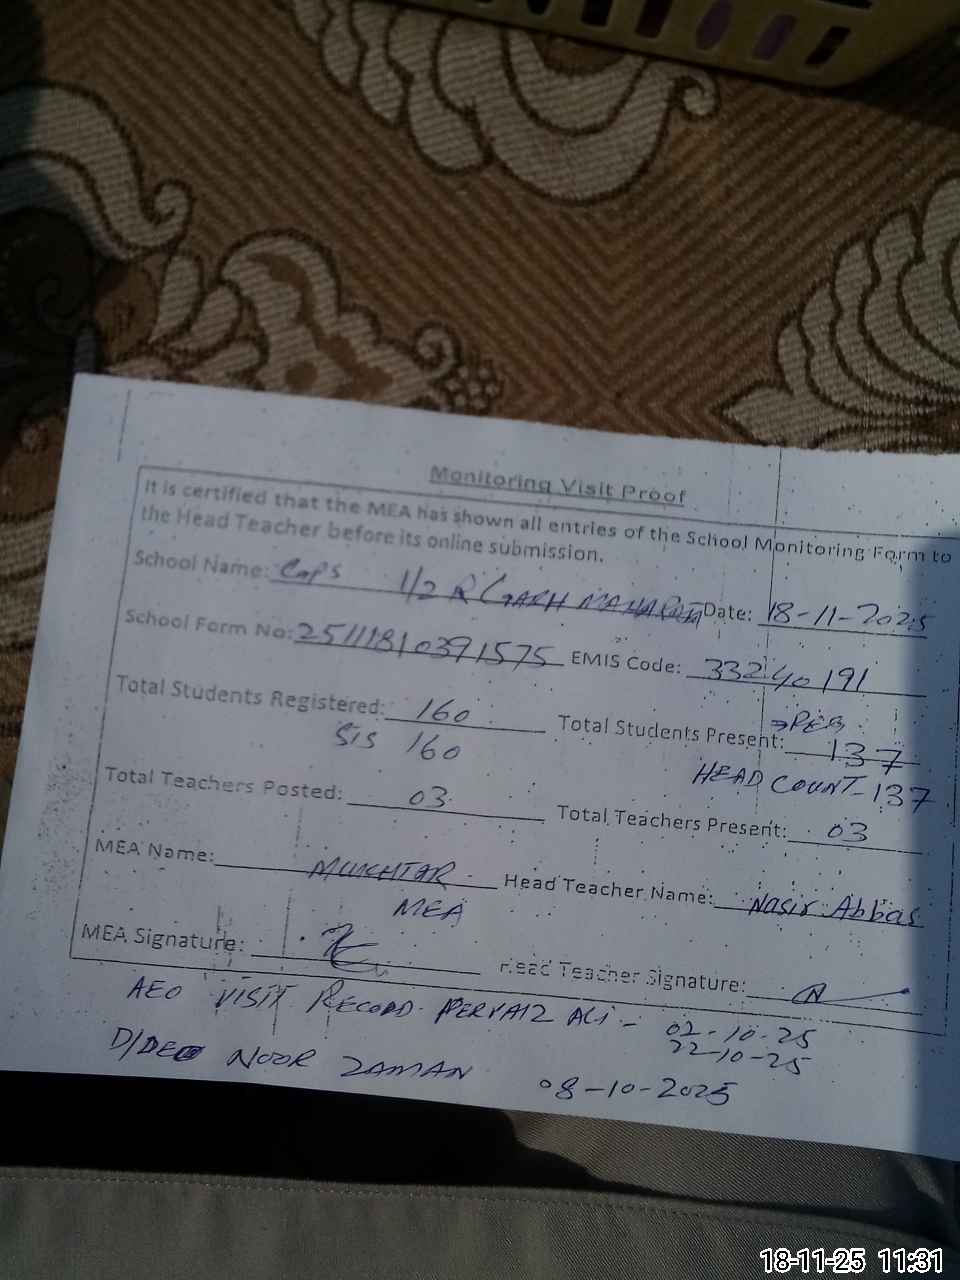 Monitoring Visit Proof
It is certified that the MEA has shown all entries of the School Monitoring Form to
the Head Teacher before its online submission.
School Name: GGPS 1/2 R GARH MAHARAJA Date: 18-11-2025
School Form No: 25111810391575 EMIS Code: 33240191
Total Students Registered: 160 Total Students Present: →REG 137
SIS 160 HEAD COUNT-137
Total Teachers Posted: 03 Total Teachers Present: 03
MEA Name: MUKHTAR Head Teacher Name: Nasir Abbas
MEA
MEA Signature: Head Teacher Signature:
AEO VISIT RECORD PERVAIZ ALI - 02-10-25
22-10-25
D/DEO NOOR ZAMAN 08-10-2025
18-11-25 11:31